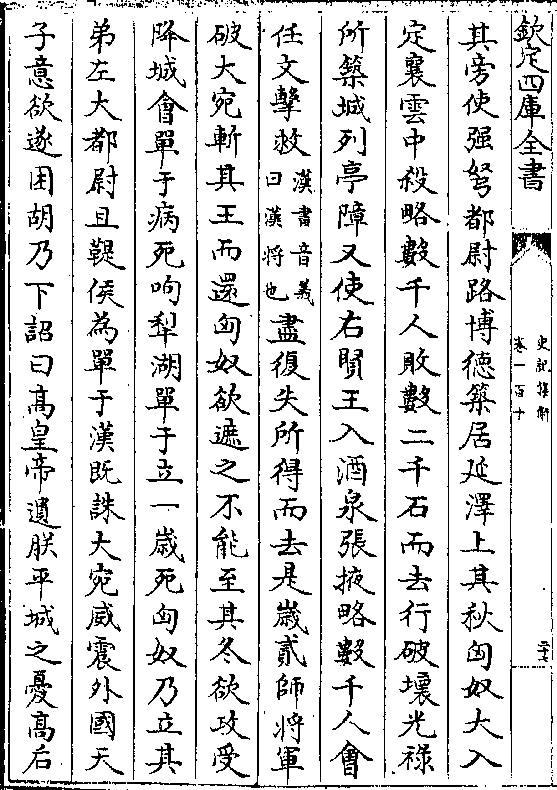 欽定四庫全書
史記集解
卷一百十
二十七
其旁使强弩都尉路博德築居延澤上其秋匈奴大入
定襄雲中殺略數千人敗數二千石而去行破壞光祿
所築城列亭障又使右賢王入酒泉張掖略數千人會
任文擊救漢書音義曰漢將也盡復失所得而去是歲貳師將軍
破大宛斬其王而還匈奴欲遮之不能至其冬欲攻受
降城會單于病死呴犁湖單于立一歲死匈奴乃立其
弟左大都尉且鞮侯為單于漢既誅大宛威震外國天
子意欲遂困胡乃下詔曰高皇帝遺朕平城之憂高后